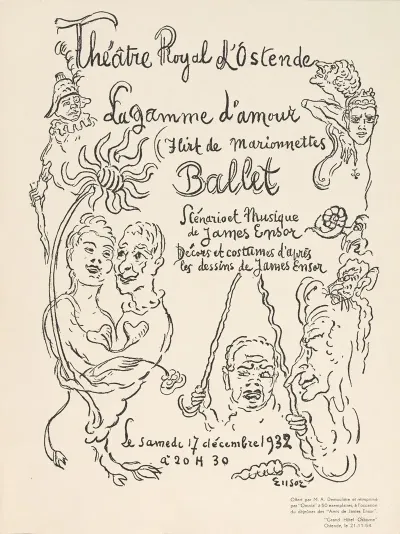 Théâtre Royal d'Ostende
La gamme d'amour
(Flirt de Marionnettes
Ballet
Scénario et Musique
de James Ensor
Décors et costumes d'après
les dessins de James Ensor
Le samedi 17 décembre 1932
à 20 H 30
Ensor
Offert par M. A. et réimprimé
par "Orsuta" à 50 exemplaires, à l'occasion
du déjeûner des "Amis de James Ensor".
"Grand Hôtel Osborne"
Ostende, le 21-11-54